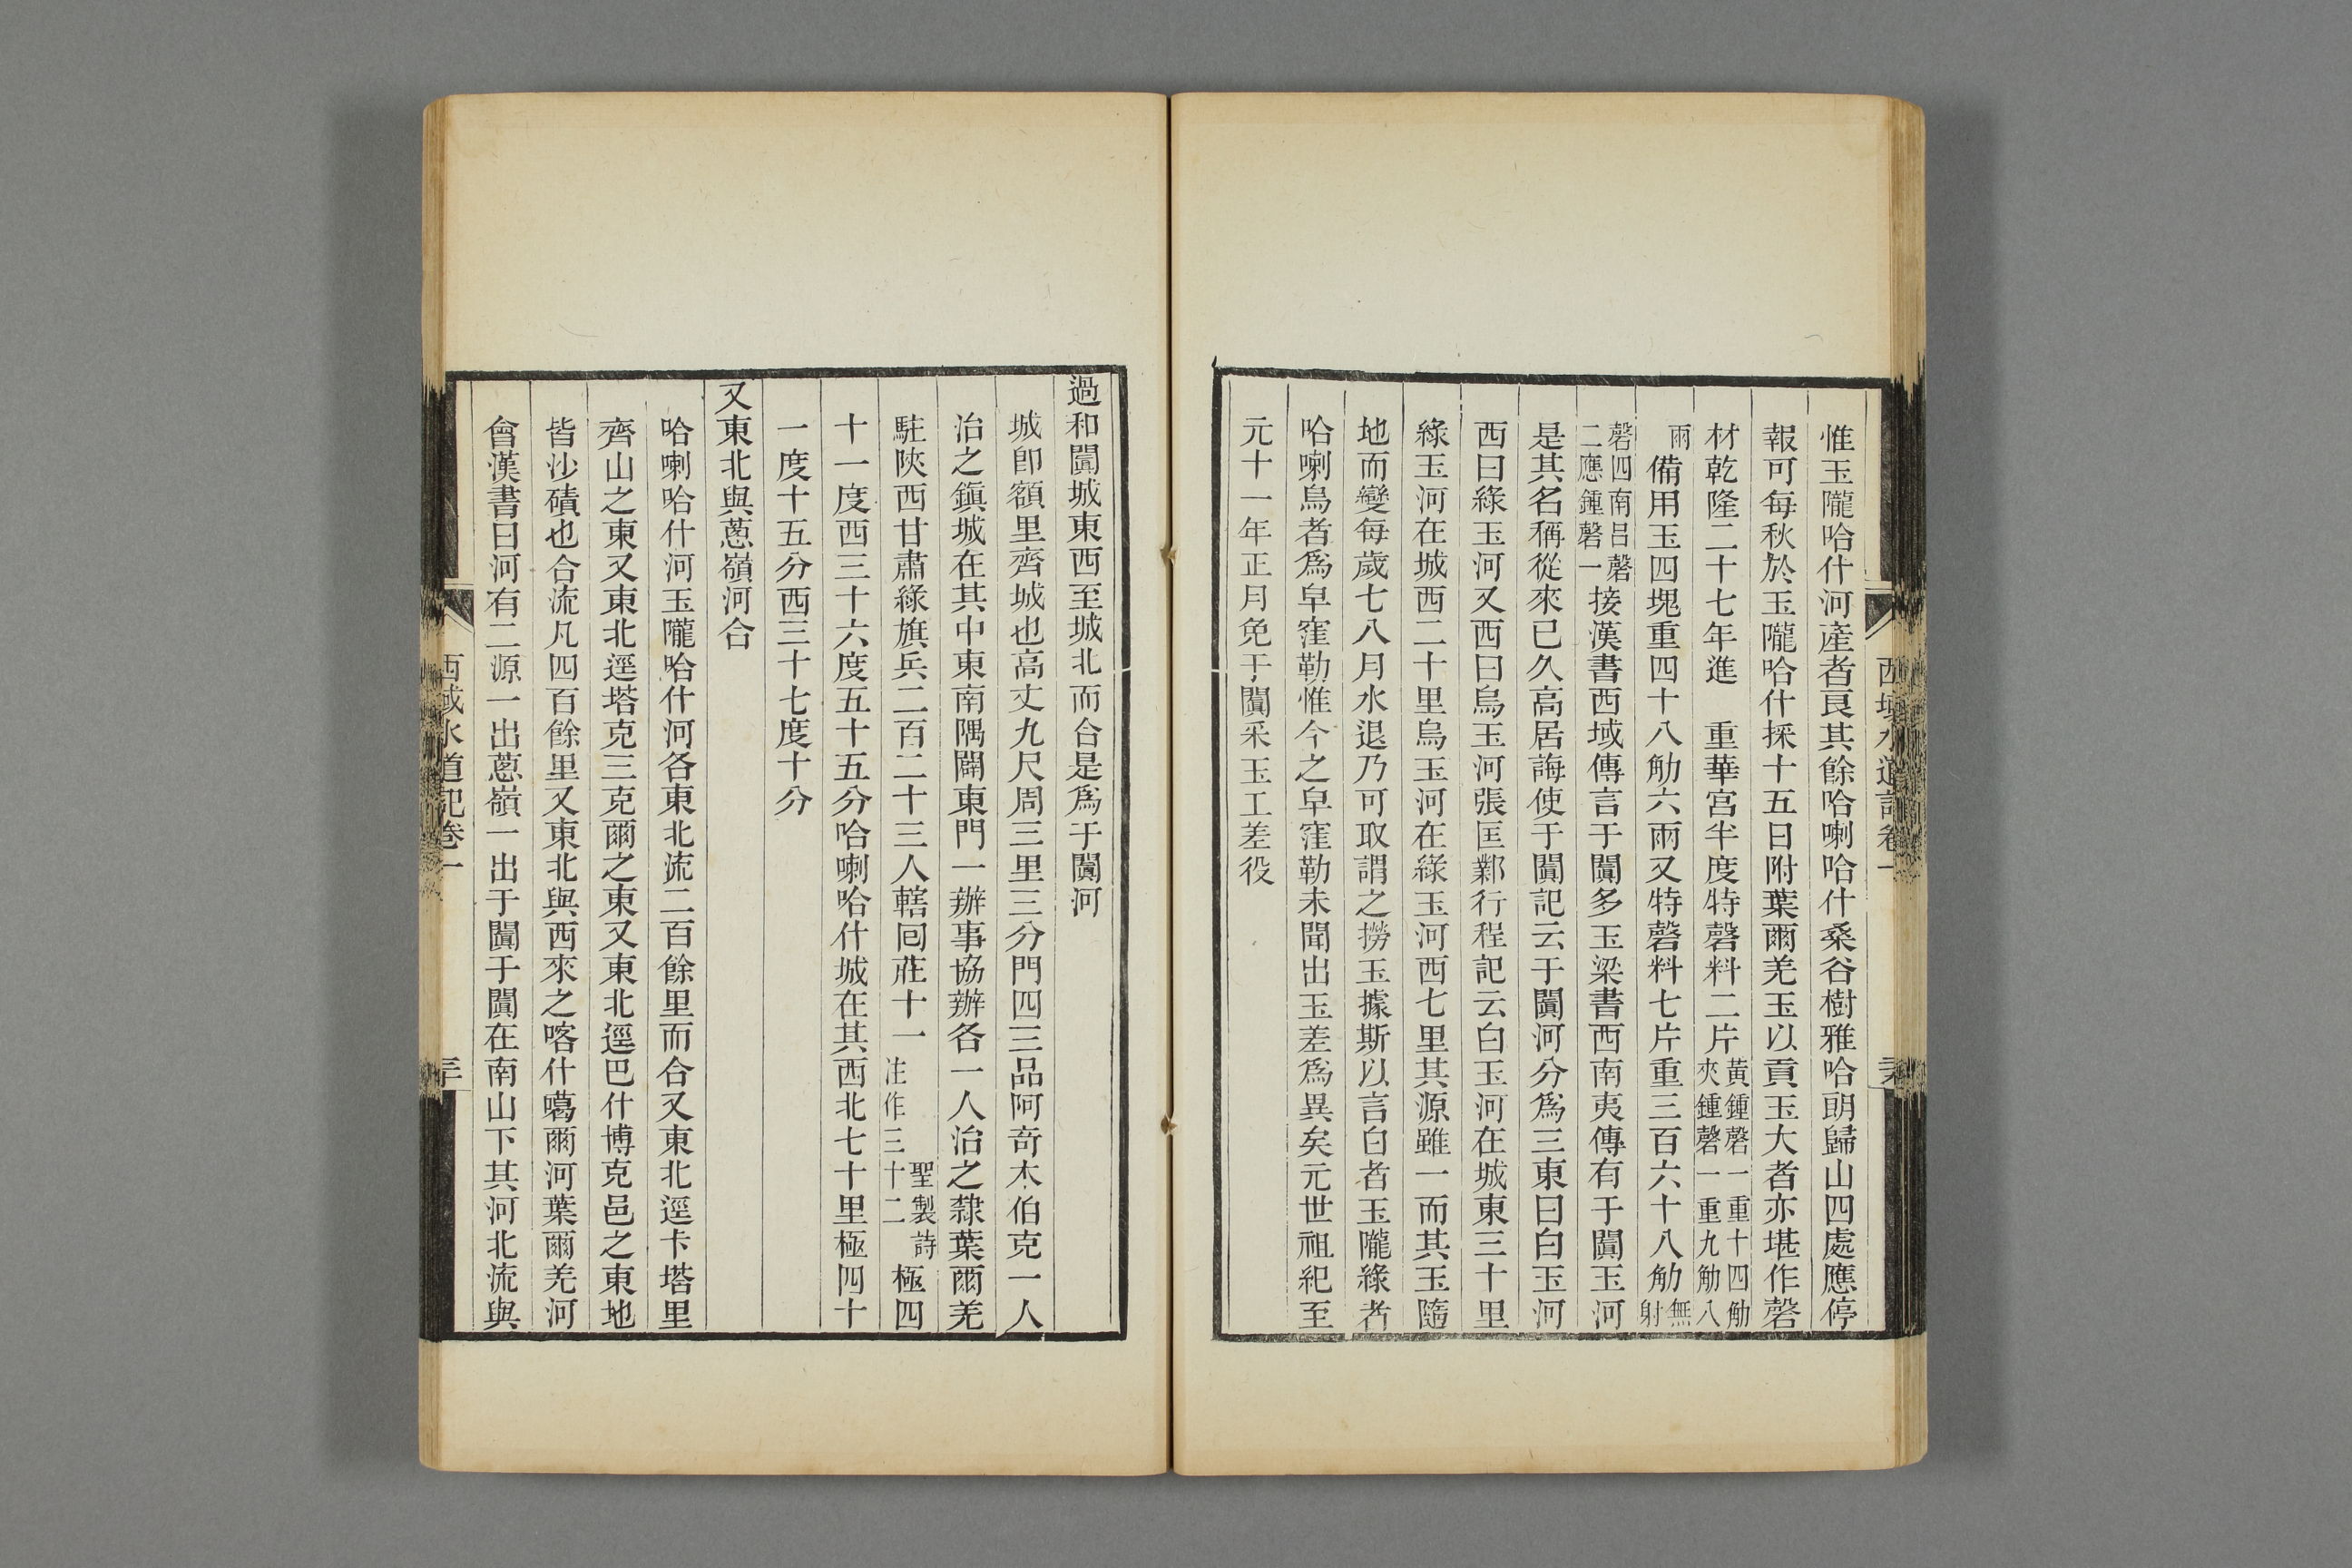 惟玉隴哈什河產者良其餘哈喇哈什桑谷樹雅哈朗歸山四處應停
報可每秋於玉隴哈什採十五日附葉爾羌玉以貢玉大者亦堪作磬
材乾隆二十七年進　重華宮半度特磬料二片黃鍾磬一重十四觔夾鍾磬一重九觔八
兩備用玉四塊重四十八觔六兩又特磬料七片重三百六十八觔無射
磬四南呂磬二應鍾磬一接漢書西域傳言于闐多玉梁書西南夷傳有于闐玉河
是其名稱從來已久高居誨使于闐記云于闐河分爲三東曰白玉河
西曰綠玉河又西曰烏玉河張匡鄴行程記云白玉河在城東三十里
綠玉河在城西二十里烏玉河在綠玉河西七里其源雖一而其玉隨
地而變每歲七八月水退乃可取謂之撈玉據斯以言白者玉隴綠者
哈喇烏者爲皁窪勒惟今之皁窪勒未聞出玉差爲異矣元世祖紀至
元十一年正月免于闐采玉工差役
過和闐城東西至城北而合是爲于闐河
城卽額里齊城也高丈九尺周三里三分門四三品阿奇木伯克一人
治之鎭城在其中東南隅闢東門一辦事協辦各一人治之隸葉爾羌
駐陝西甘肅綠旗兵二百二十三人轄回莊十一聖製詩注作三十二極四
十一度西三十六度五十五分哈喇哈什城在其西北七十里極四十
一度十五分西三十七度十分
又東北與蔥嶺河合
哈喇哈什河玉隴哈什河各東北流二百餘里而合又東北逕卡塔里
齊山之東又東北逕塔克三克爾之東又東北逕巴什博克邑之東地
皆沙磧也合流凡四百餘里又東北與西來之喀什噶爾河葉爾羌河
會漢書曰河有二源一出蔥嶺一出于闐于闐在南山下其河北流與
西域水道記卷一